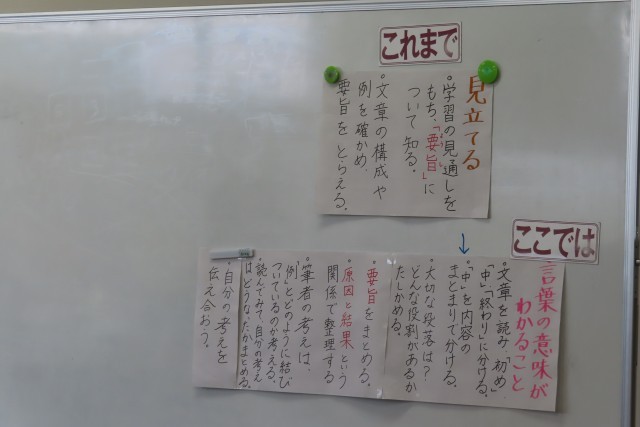 これまで
見立てる
•学習の見通しを
もち、「要旨」に
ついて知る。
•文章の構成や
例を確かめ、
要旨をとらえる。
ここでは
言葉の意味が
わかること
•文章を読み、「初め」
「中」「終わり」に分ける。
•「中」を内容の
まとまりで分ける。
•大切な段落は？
どんな役割があるか
たしかめる。
•要旨をまとめる。
•原因と結果という
関係で整理する
•筆者の考えは、
「例」とどのように結び
ついているのか考える。
•読んでみて、自分の考え
はどうなったかまとめる。
•自分の考えを
伝え合おう。